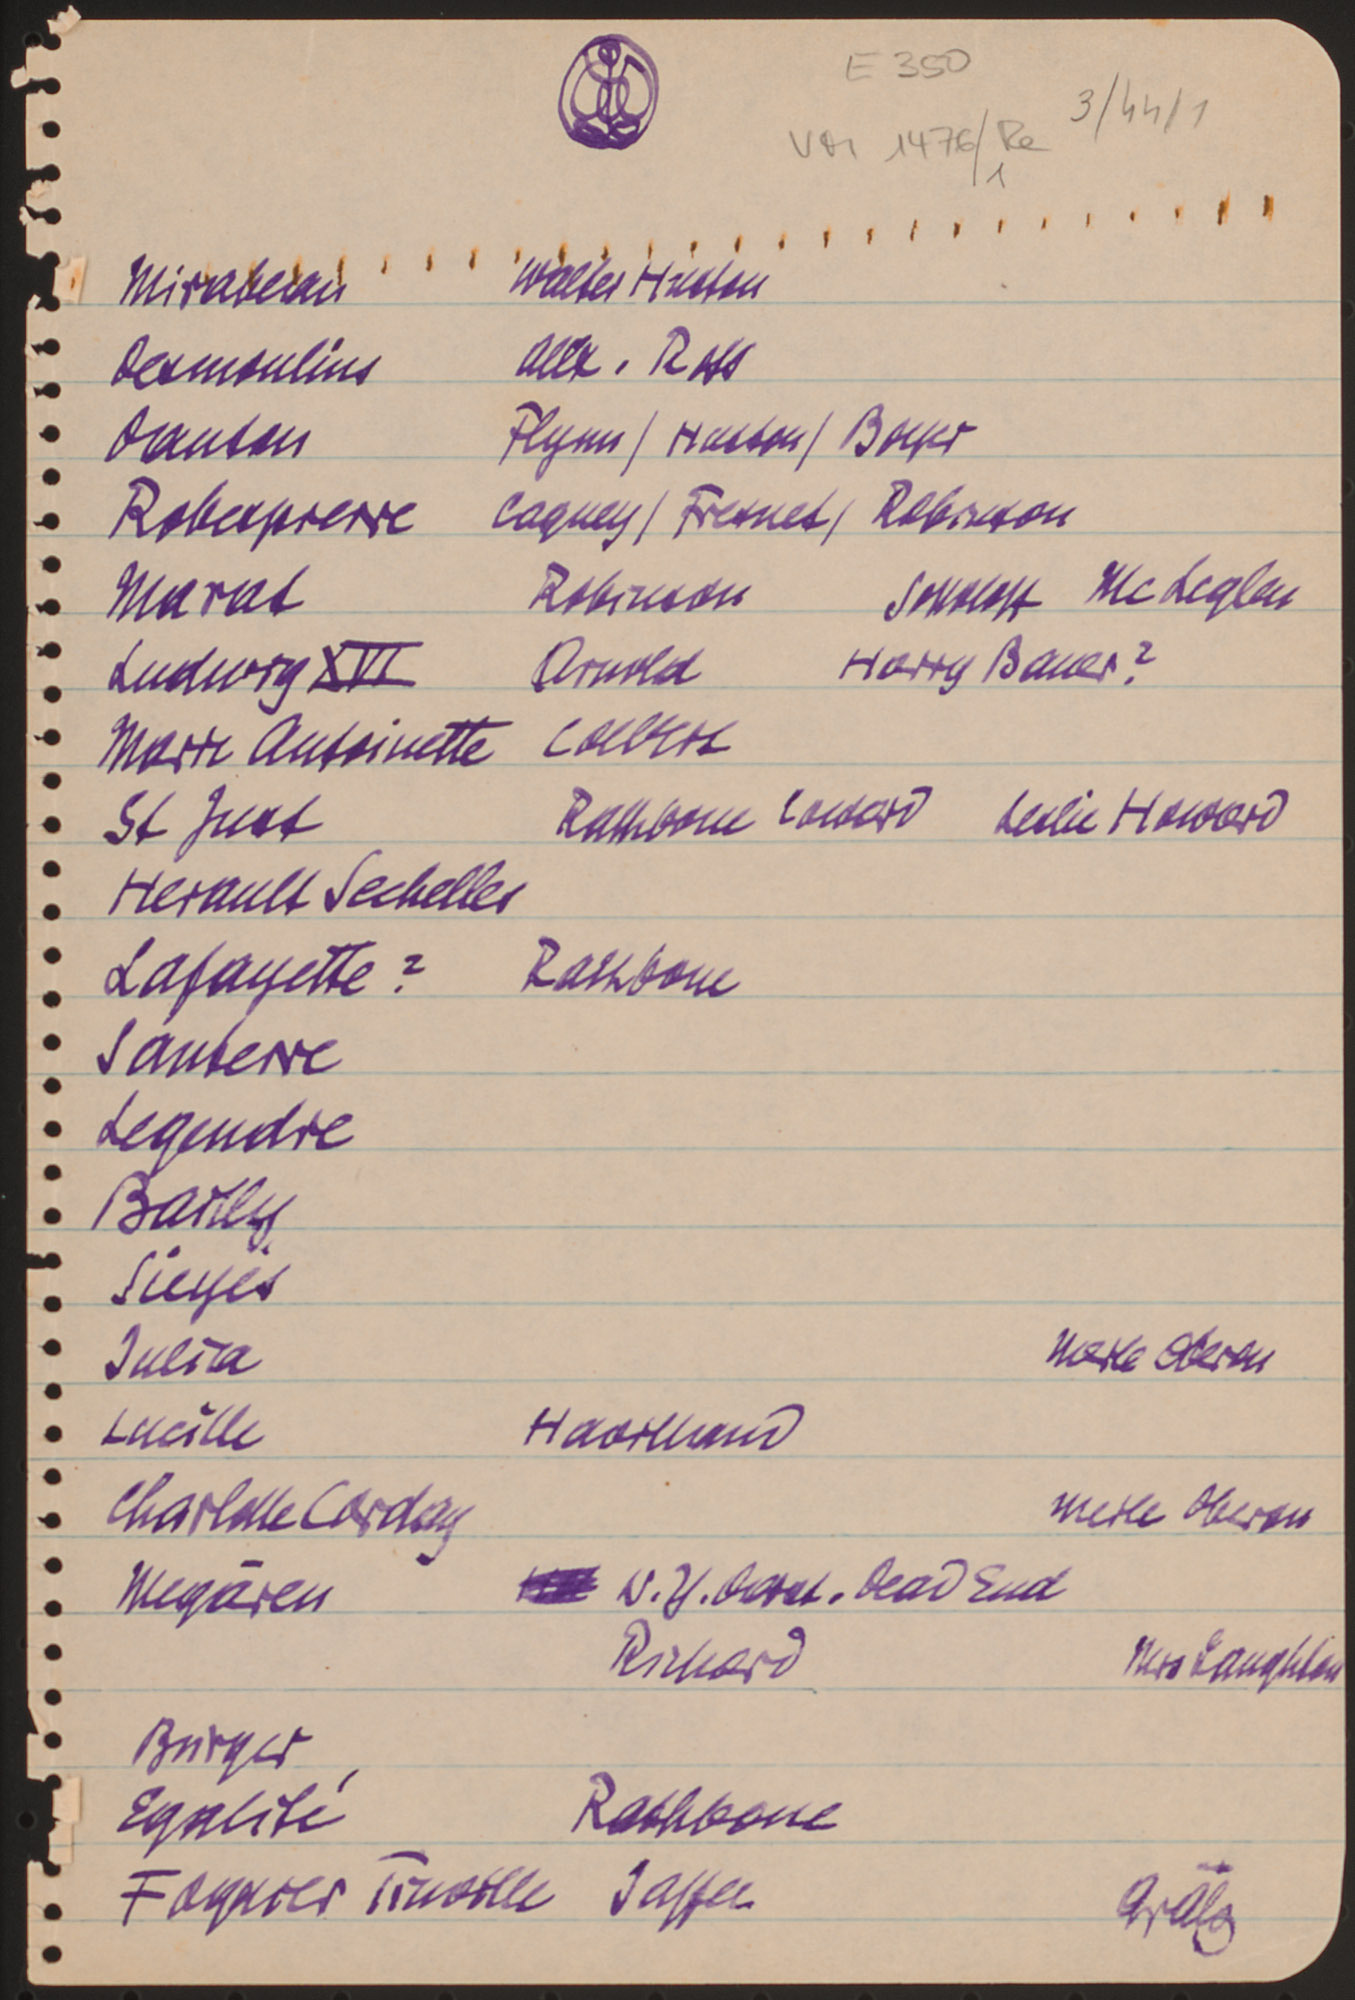 E 350
3/44/1
VM 1476/Re
1
Mirabeau Walter Huston
Desmoulins Alex. Ross
Danton Flynn / Huston / Boyer
Robespierre Cagney / Fresnet / Robinson
Marat Robinson Sokoloff Mc Leglen
Ludwig XVI Arnold Harry Bauer?
Marie Antoinette Colbert
St Just Rathbone Coward Leslie Howard
Herault Sechelles
Lafayette? Rathbone
Santerre
Legendre
Bailly
Sieyès
Julia Merle Oberon
Lucille Haviland
Charlotte Corday Merle Oberon
Megären N.Y. Darst. Dead End
Richard Mrs Laughton
Bürger
Egalité Rathbone
Foquier Tinville Jaffee